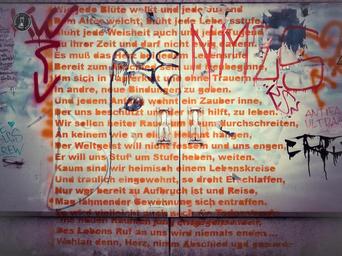 Wie jede Blüte welkt und jede Jugend
Dem Alter weicht, blüht jede Lebensstufe,
Blüht jede Weisheit auch und jede Tugend
Zu ihrer Zeit und darf nicht
Es muß das
Bereit zum Abschied sein und Neubeginne,
Um sich in Tapferkeit und ohne Trauern
In andre, neue Bindungen zu geben.
Und jedem Anfang wohnt ein Zauber inne,
Der uns beschützt und der uns hilft, zu leben.
Wir sollen heiter Raum um Raum durchschreiten,
An keinem wie an einer Heimat hängen,
Der Weltgeist will nicht fesseln uns und engen,
Er will uns Stuf' um Stufe heben, weiten.
Kaum sind wir heimisch einem Lebenskreise
Und traulich eingewohnt, so droht Erschlaffen,
Nur wer bereit zu Aufbruch ist und Reise,
Mag lähmender Gewöhnung sich entraffen.
Es wird vielleicht auch noch die Todesstunde
Uns neuen Räumen jung entgegensenden,
Des Lebens Ruf an uns wird niemals enden...
Wohlan denn, Herz, nimm Abschied und gesunde